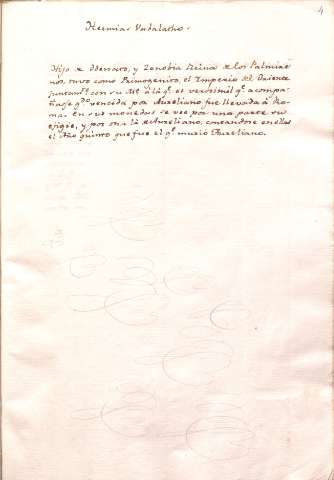 4
Hermias Vabalatho.
Hijo de Odenato, y Zenobia Reina de los Palmire-
nos, tuvo como Primogenito, el Imperio del Oriente
juntamte. con su Me. á la qe. es verosimil qe. acompa-
ñase qdo. vencida por Aureliano fue llevada á Ro-
ma. En sus monedas se vee por una parte su
efigie, y por otra la de Aureliano, contandose en ellas
el Año quinto que fue el qe. murio Aureliano.